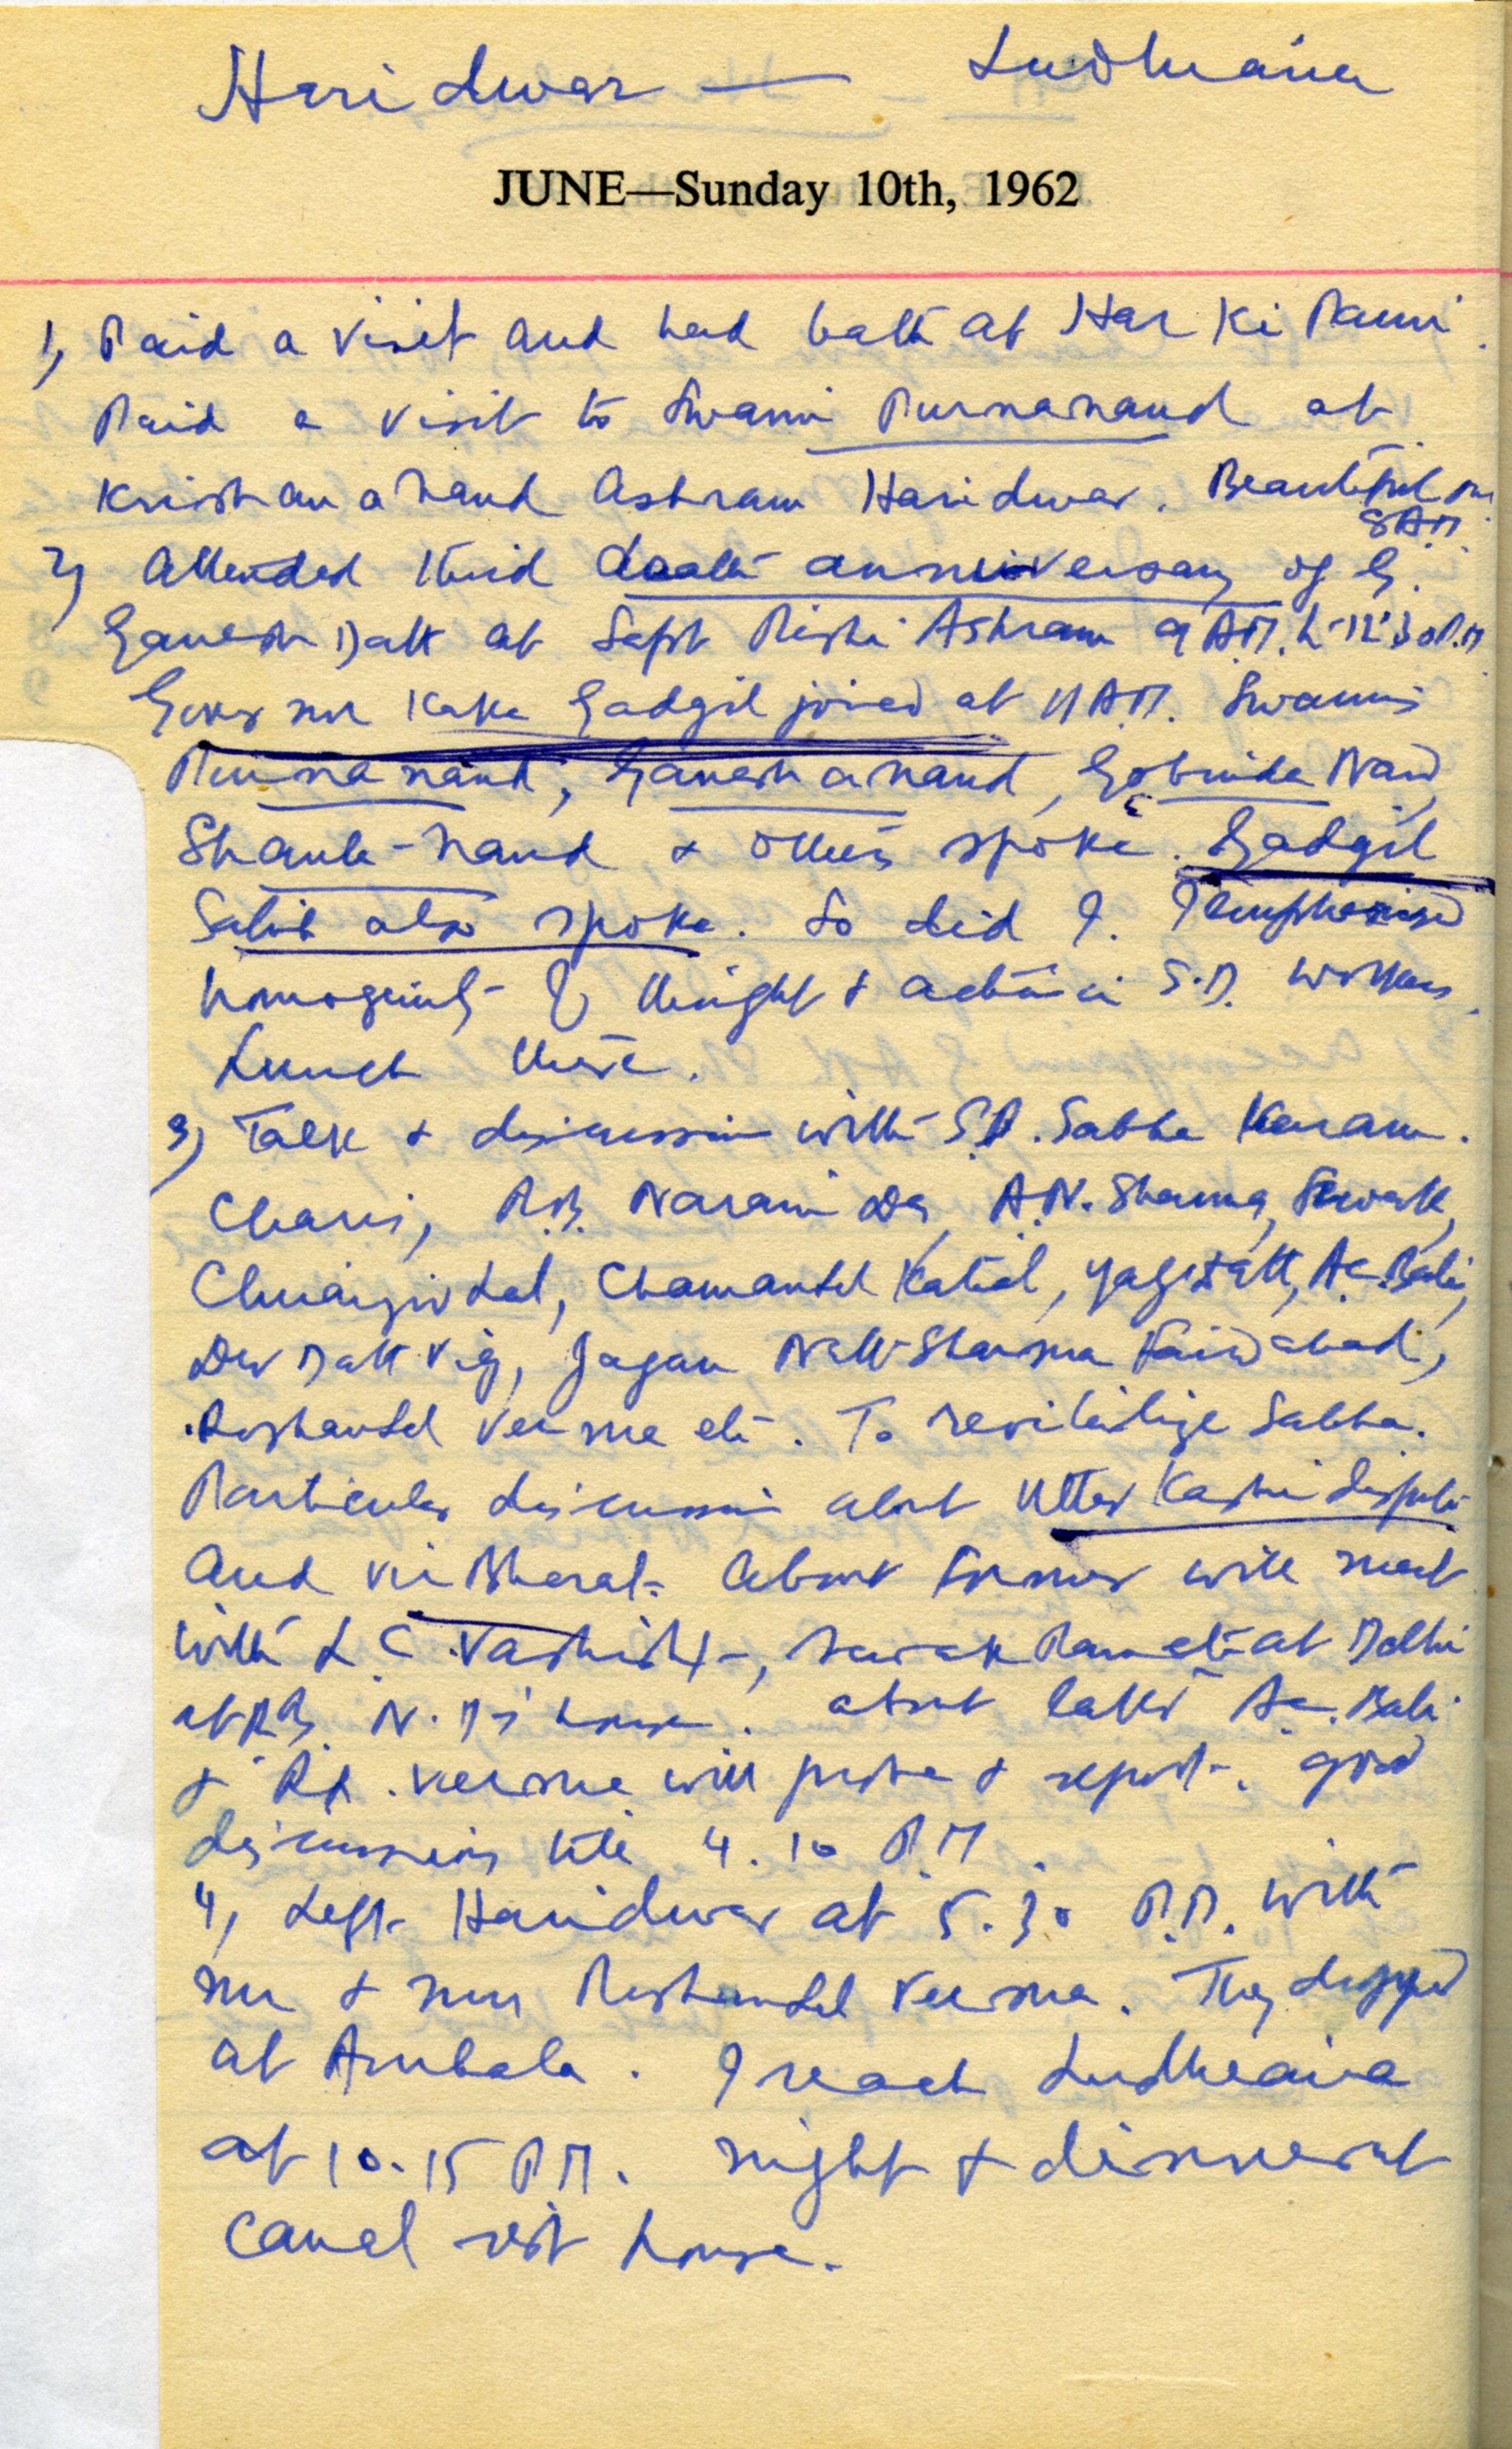 Haridwar — Ludhiana
JUNE—Sunday 10th, 1962
1, Paid a visit and had bath at Har Ki Pauri.
Paid a visit to Swami Purnanand at
Krishananand Ashram Haridwar. Beautiful
8 A.M.
2, Attended third death anniversary of G.
Ganesh Datt at Sapt Rishi Ashram 9 A.M. to 12.30 P.M.
Governor Kaka Gadgil joined at 11 A.M. Swamis
Purnanand, Ganeshanand, Gobinda Nand,
Shanta-nand & others spoke. Gadgil
Sahib also spoke. So did I. I emphasised
homogeneity of thought & action in S.D. workers.
Lunch there.
3, Talk & discussion with S.D. Sabha Karam-
Charis, R.B. Narain Das, A.N. Sharma, Sewak,
Chiranjiv Lal, Chamanlal Katial, Yagdatt, Ac. Bali,
Dev Datt Vij, Jagan Nath Sharma Faridabad,
Roshanlal Verma etc. To revitalize Sabha.
Particular discussion about Utter Kashi dispute
and Vir Bharat. About former will meet
with L.C. Vashisht, Sewak Ram etc at Delhi
at R.B. N.D's house. About latter Ac. Bali
& R.L. Verma will probe & report. Good
discussions till 4.10 P.M.
4, Left Haridwar at 5.30 P.M. with
Mr & Mrs Roshanlal Verma. They dropped
at Ambala. I reach Ludhiana
at 10.15 P.M. Night & dinner at
Canal rest house.